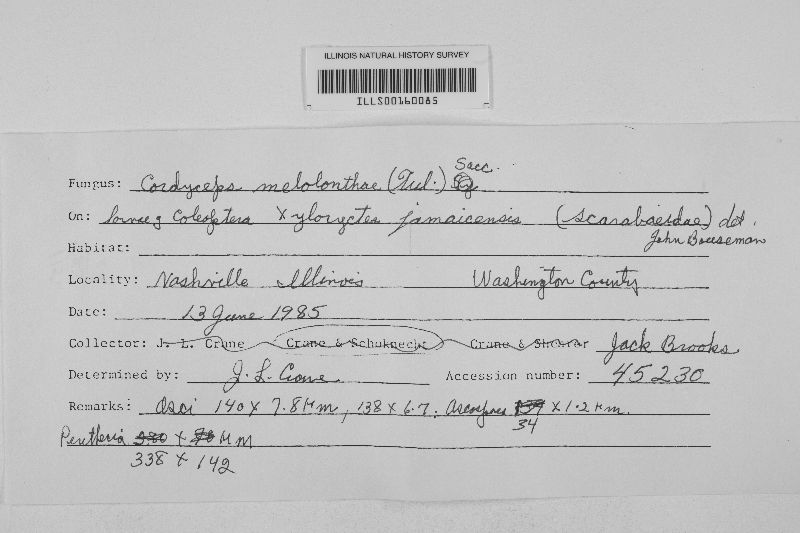 ILLINOIS NATURAL HISTORY SURVEY
ILLS00160085
Fungus: Cordyceps melolonthae (Tul.) Sacc.
On: larvae of Coleoptera Xyloryctes jamaicensis (Scarabaeidae) det. John Bouseman
Habitat:
Locality: Nashville Illinois Washington County
Date: 13 June 1985
Collector: J. L. Crane Crane & Schuknecht Crane & Shearer Jack Brooks
Determined by: J. L. Crane Accession number: 45230
Remarks: Asci 140 x 7.8 µm, 138 x 6.7; Ascospores 34 x 1.2 µm.
Perithecia x µm
338 x 142